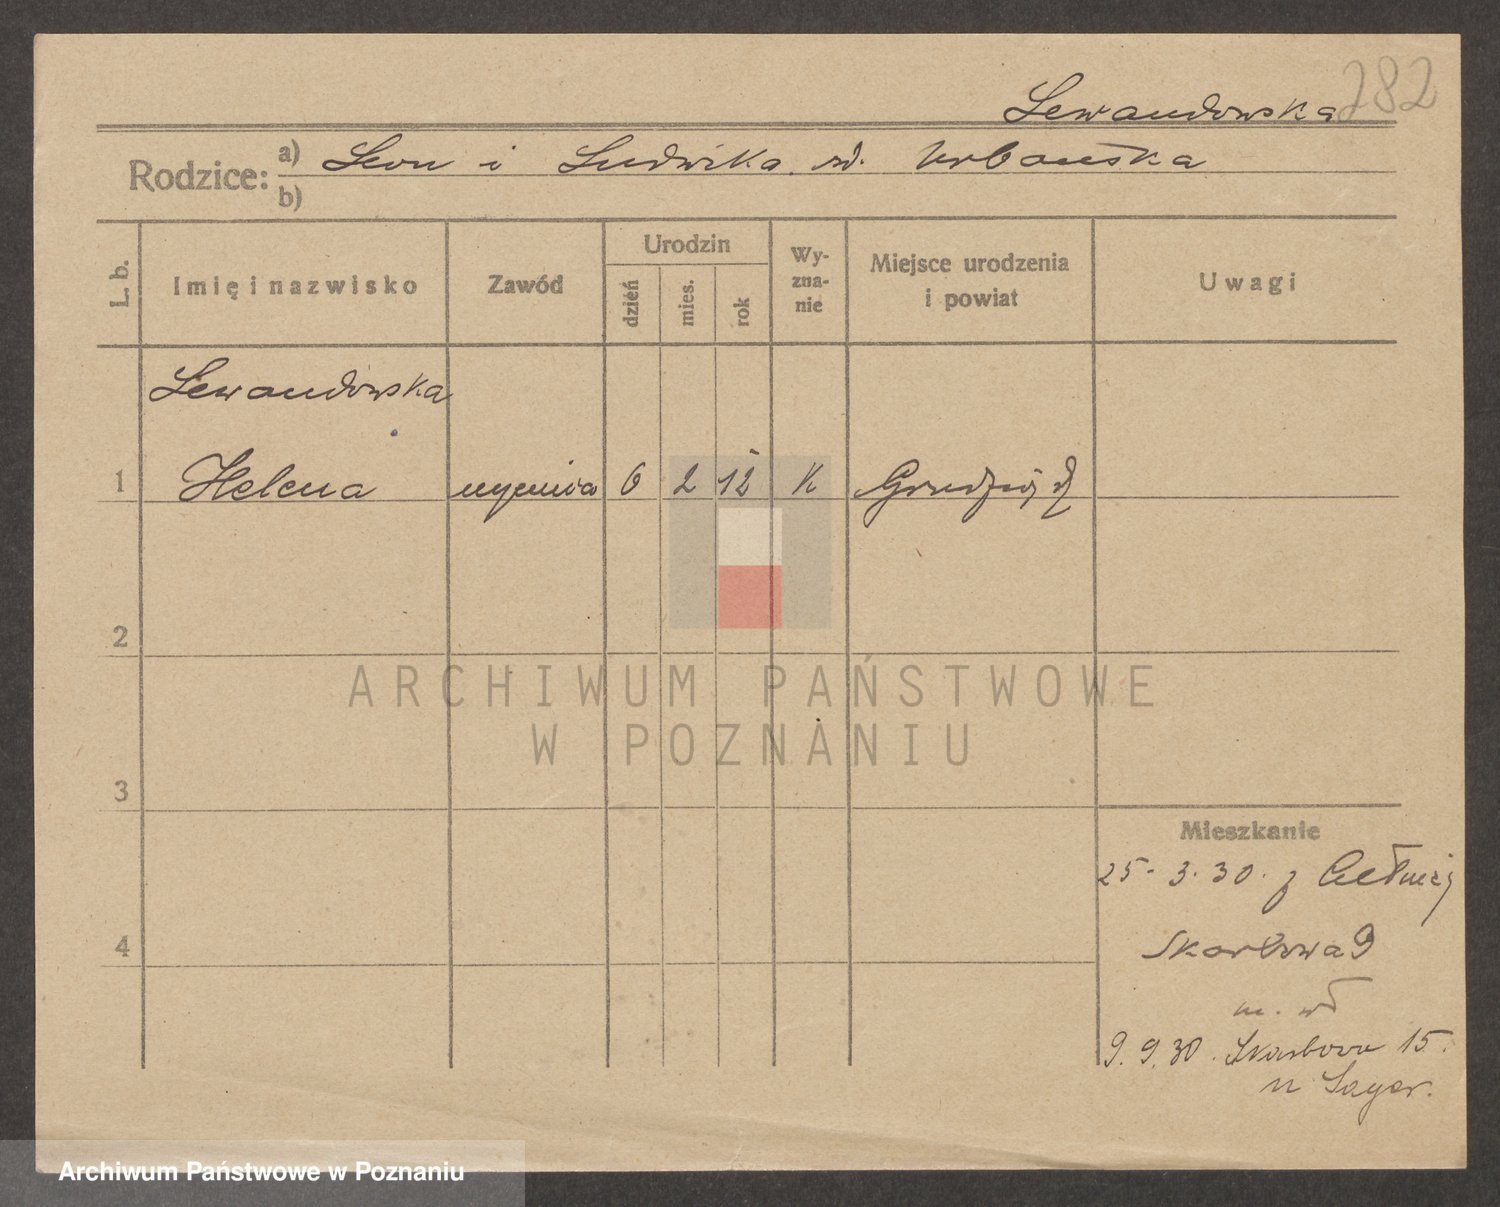 282
Lewandowska
Rodzice: a) Leon i Ludwika zd. Urbańska
b)
L. b.
Imię i nazwisko
Zawód
Urodzin
dzień
mies.
rok
Wy-
zna-
nie
Miejsce urodzenia
i powiat
Uwagi
Lewandowska
1 Helena uczenica 6 2 12 K Grudziądz
2
ARCHIWUM PAŃSTWOWE
W POZNANIU
3
Mieszkanie
25. 3. 30. z
4
Skarbowa 9
m. wł
9. 9. 30. Skarbowa 15.
u Sager.
Archiwum Państwowe w Poznaniu